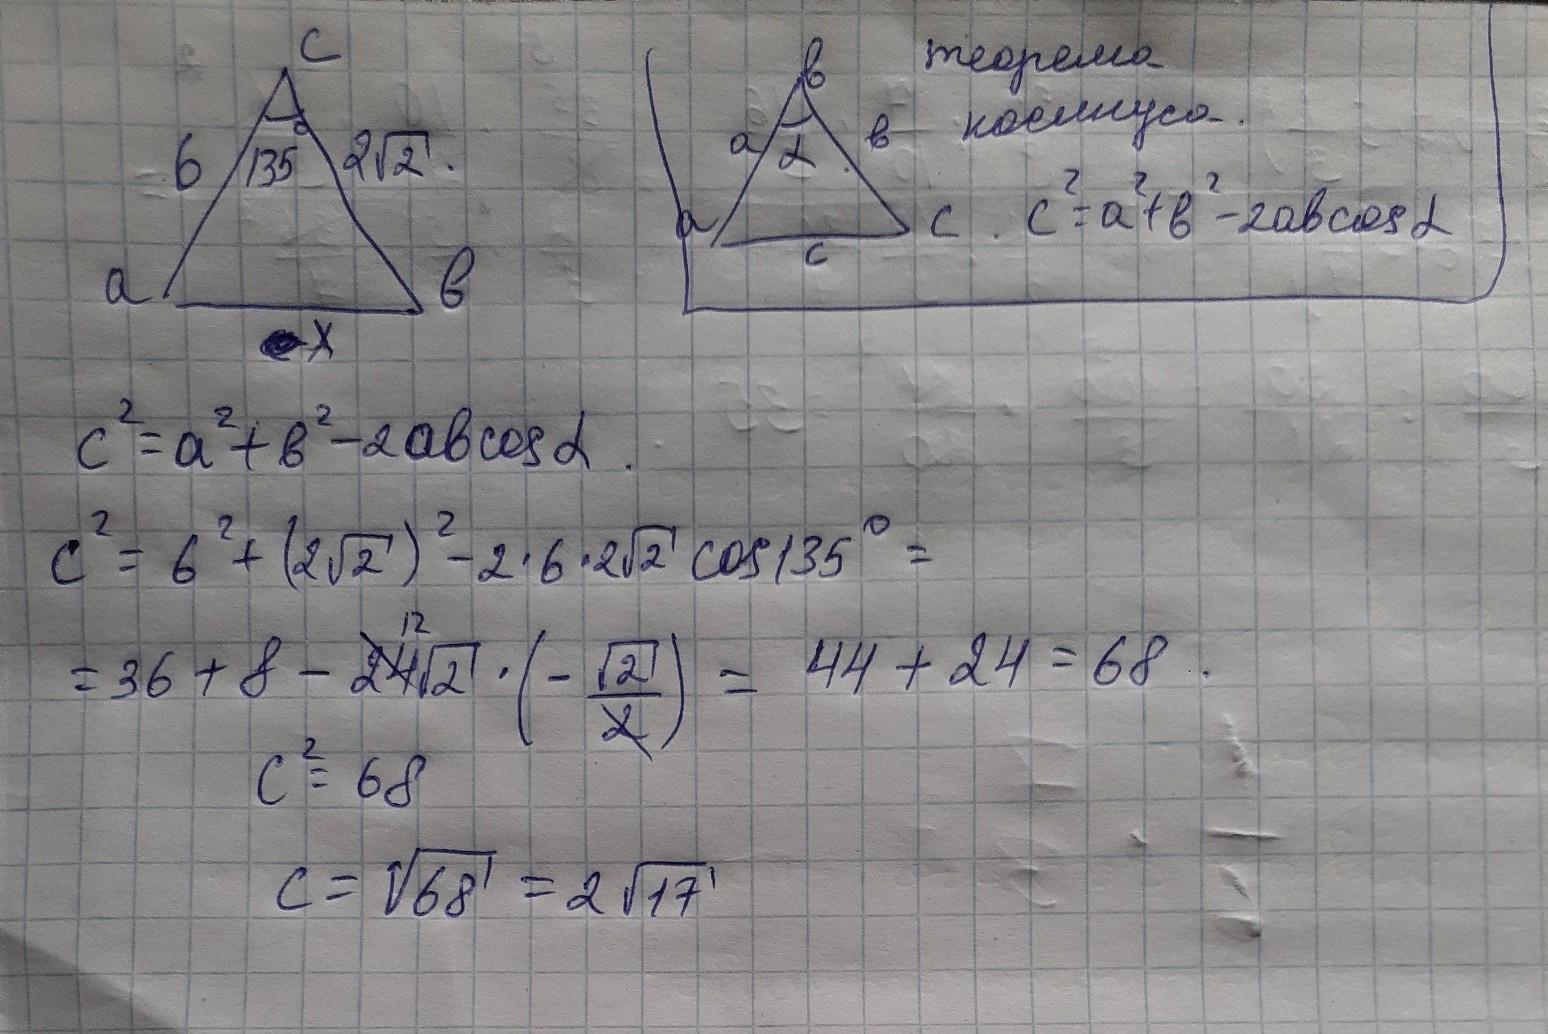 C
6
135
2√2.
а
в
X
в
теорема
косинуса.
а
α
в
а
с
с
. c²=a²+в²-2aвcosα
c²=a²+в²-2aвcosα.
c²= 6²+(2√2)²-2·6·2√2 cos135°=
12
=36+8-24√2·(-√2/2)= 44+24=68.
c²= 68
c=√68 =2√17